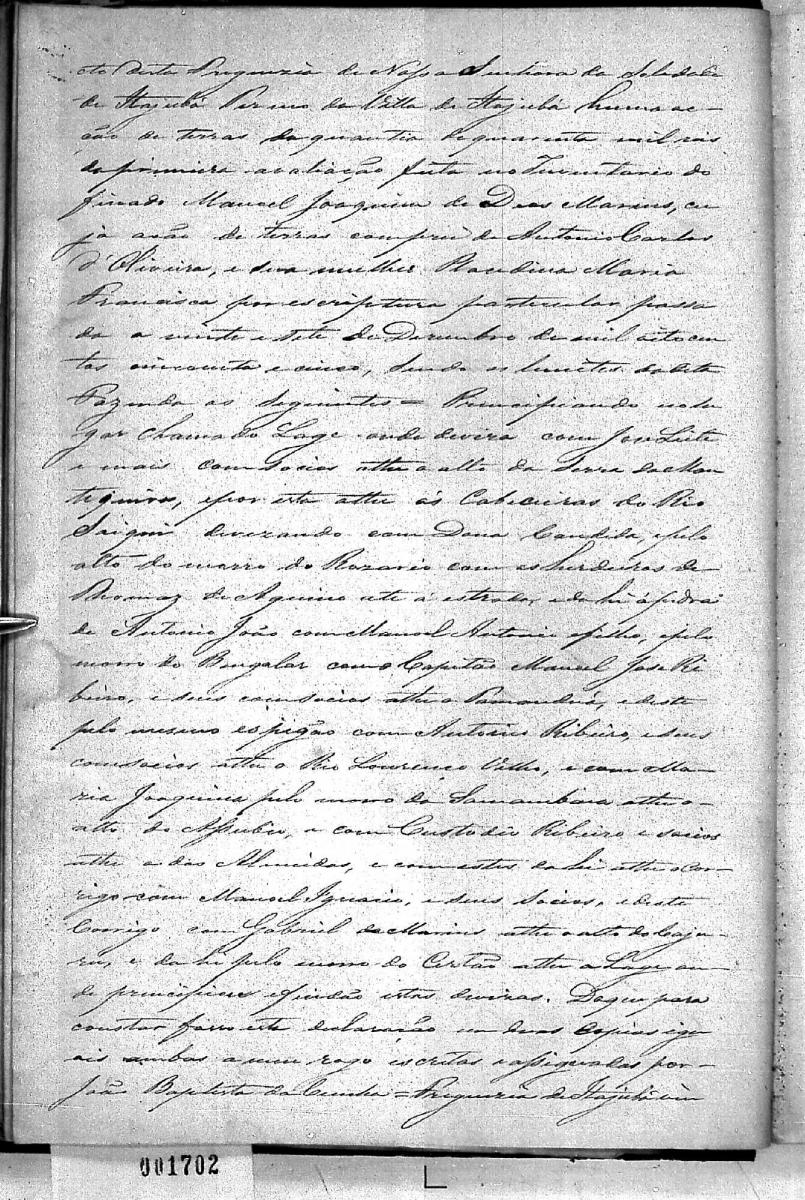 cto desta Freguezia de Nossa Senhora da Soledade
de Itajubá Termo da Villa de Itajubá huma ac-
ção de terras da quantia de quarenta mil reis
da primeira avaliação feita no Inventario do
finado Manoel Joaquim de Deos Marins, cu
ja acão de terras comprei de Antonio Carlos
d'Oliveira, e sua mulher Placedina Maria
Francisca por escriptura particular passa
da a vinte e sete de Dezembro de mil oito cen
tos cincoenta e cinco, sendo os limites da dita
Fazenda os seguintes = Principiando no lu
gar chamado Lage onde deviza com José Leite
e mais com socios athe o alto da Serra da Man
tiqueira, e por esta athe ás Cabeceiras do Rio
devizando com Dona Candida, e pelo
alto do morro do Rozario com os herdeiros de
Thomaz de Aquino ate á estrada, e dahi á pedra
de Antonio João com Manoel Antonio e filho, e pelo
morro do Bengalar com o Capitão Manoel José Ri
beiro, e seus com socios athe o e deste
pelo mesmo espigão com Antonio Ribeiro, e seus
com socios athe o Rio Lourenço Velho, e com Ma-
ria Joaquina pelo morro da Samambaia athe o
alto do e com Custodio Ribeiro e socios
athe a dos Almeidas, e com estes dahi athe o Cor-
rigo com Manoel Ignacio, e seus Socios, e deste
Corrigo com Gabriel de Marins athe o alto do Caju-
ru, e dahi pelo morro do Certão athe a Lage on-
de principiou e findão estas devizas. Do que para
constar fasso esta declaração em duas copias igu
ais ambas a meu rogo escritas e assignadas por-
João Baptista da Cunha = Freguezia de Itajubá em
001702